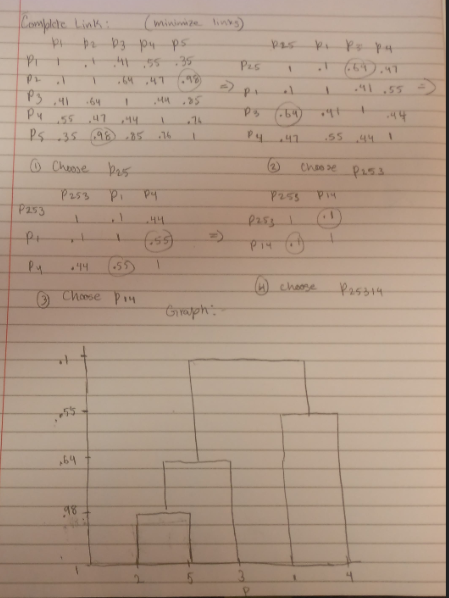 Complete Link: (minimize links)
p1 p2 p3 p4 p5
P1 1 .1 .41 .55 .35
P2 .1 1 .64 .47 .98 =>
P3 .41 .64 1 .44 .85
P4 .55 .47 .44 1 .76
P5 .35 .98 .85 .76 1
P25 P1 P3 P4
P25 1 .1 .64 .47
P1 .1 1 .41 .55 =>
P3 .64 .41 1 .44
P4 .47 .55 .44 1
① Choose P25
② choose P253
P253 P1 P4
P253 1 .1 .44
P1 .1 1 .55 =>
P4 .44 .55 1
P253 P14
P253 1 .1
P14 .1 1
③ Choose P14
④ choose P25314
Graph:-
.1
.55
.64
.98
1
2 5 3 1 4
P